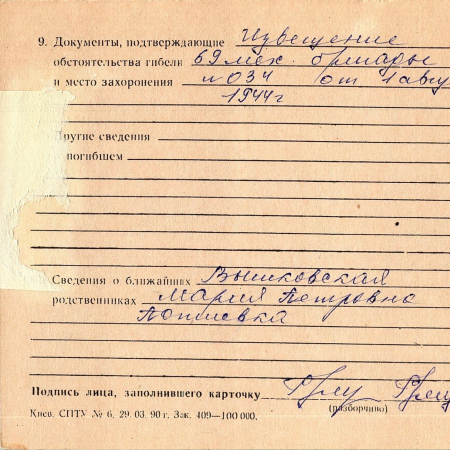 9. Документы, подтверждающие Извещение
обстоятельства гибели 69 мех. бригады
и место захоронения №034 от 1 авгу
1944 г
Другие сведения
погибшем
Сведения о ближайших Вышковская
родственниках Мария Петровна
Подпись лица, заполнившего карточку
(разборчиво)
Киев. СПТУ № 6. 29. 03. 90 г. Зак. 409—100 000.